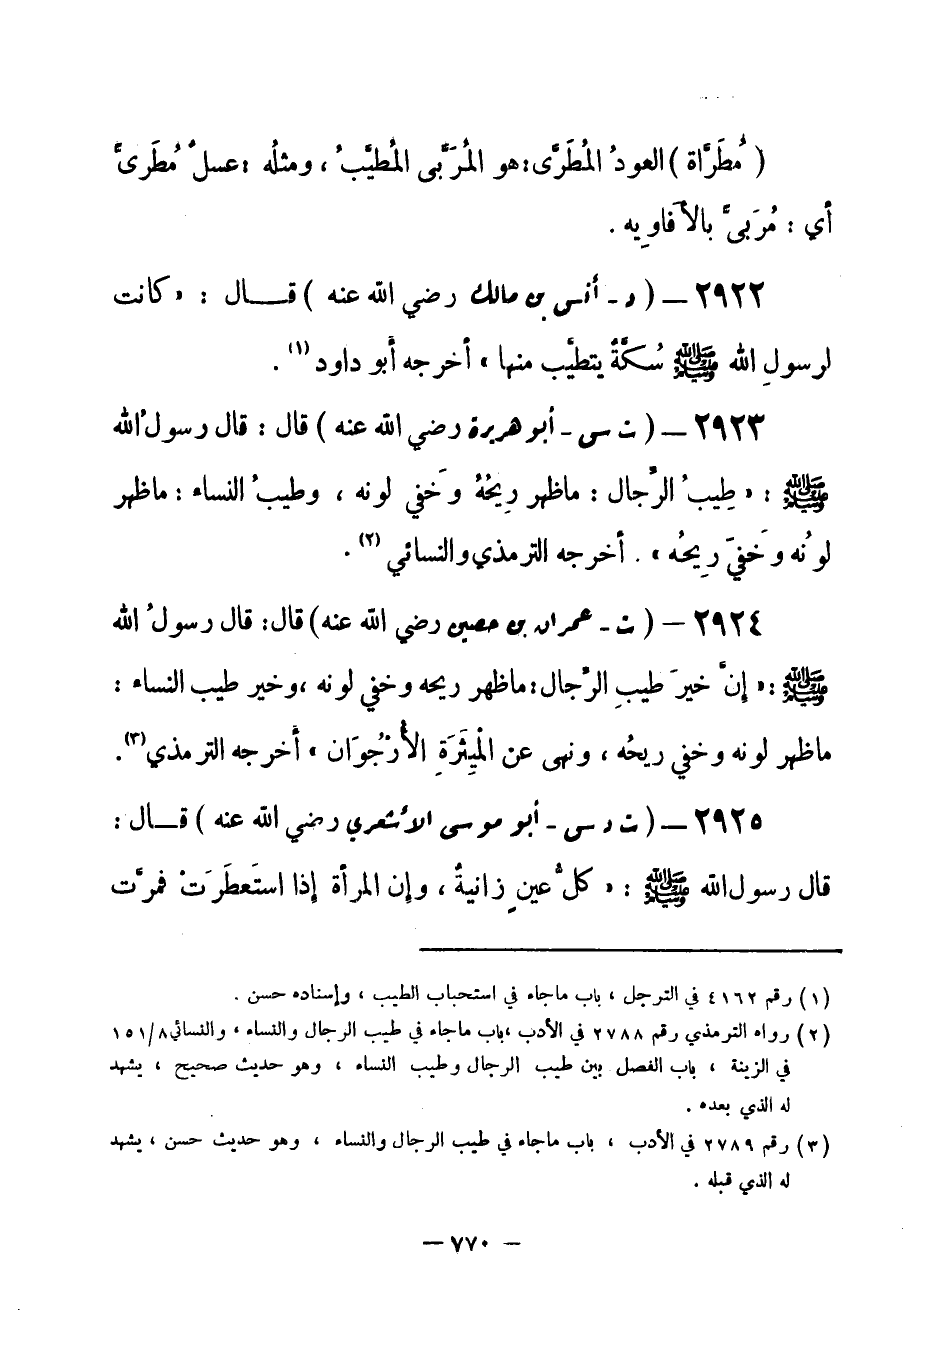 ( مُطَرَّاة ) العودُ المُطَرَّى : هو المُرَبَّى المُطيَّبُ ، ومثلُه : عسلٌ مُطَرىًّ
أي : مُرَبىًّ بالأفاويِه .
٢٩٢٢ – ( د - أنس بن مالك رضي الله عنه ) قـــال : « كانت
لرسولِ الله ﷺ سُكَّةٌ يتطيَّب منها » أخرجه أبو داود (١) .
٢٩٢٣ – ( ت س - أبو هريرة رضي الله عنه ) قال : قال رسولُ الله
ﷺ : « طِيبُ الرِّجال : ماظهر رِيحُهُ وخَفي لونه ، وطيبُ النساء : ماظهر
لونُه وخَفيَ رِيحُه » . أخرجه الترمذي والنسائي (٢) .
٢٩٢٤ – ( ت - عمران بن حصين رضي الله عنه ) قال : قال رسولُ الله
ﷺ : « إنَّ خيرَ طيبِ الرِّجال : ماظهر ريحه وخفي لونه ، وخير طيب النساء :
ماظهر لونه وخفي ريحُه ، ونهى عن المِيثَرَةِ الأُرْجُوَان » أخرجه الترمذي (٣) .
٢٩٢٥ – ( ت د س - أبو موسى الأشعري رضي الله عنه ) قـــال :
قال رسول الله ﷺ : « كلُّ عينٍ زانيةٌ ، وإن المرأة إذا استَعطَرَتْ فمرَّت
(١) رقم ٤١٦٢ في الترجل ، باب ماجاء في استحباب الطيب ، وإسناده حسن .
(٢) رواه الترمذي رقم ٢٧٨٨ في الأدب ، باب ماجاء في طيب الرجال والنساء ، والنسائي ١٥١/٨
في الزينة ، باب الفصل بين طيب الرجال وطيب النساء ، وهو حديث صحيح ، يشهد
له الذي بعده .
(٣) رقم ٢٧٨٩ في الأدب ، باب ماجاء في طيب الرجال والنساء ، وهو حديث حسن ، يشهد
له الذي قبله .
– ٧٧٠ –